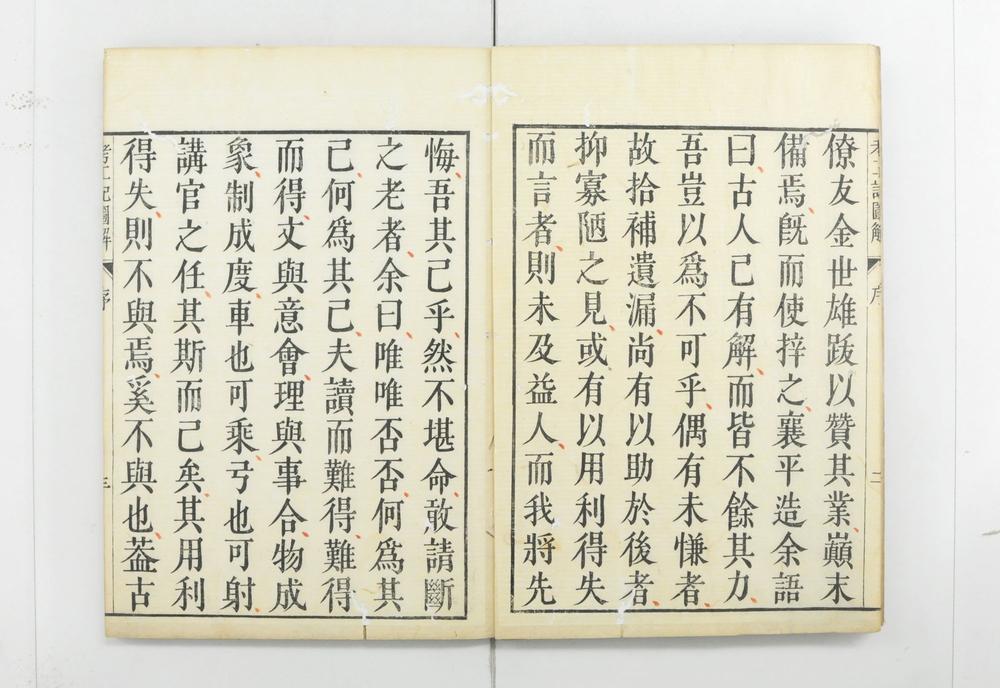 僚友金世雄跋以贊其業、巔末
備焉、旣而使梓之、襄平造余語
曰古人已有解、而皆不餘其力、
吾豈以爲不可乎、偶有未慊者
故拾補遺漏、尚有以助於後者、
抑寡陋之見、或有以用利得失
而言者、則未及益人、而我將先
悔、吾其已乎、然不堪命、敢請斷
之老者、余曰、唯唯否否、何爲其
已、何爲其已、夫讀而難得、難得
而得、文與意會、理與事合、物成
象、制成度、車也可乘、弓也可射、
講官之任、其斯而已矣、其用利
得失、則不與焉、奚不與也、葢古
考工記圖解 序 二
考工記圖解 序 三